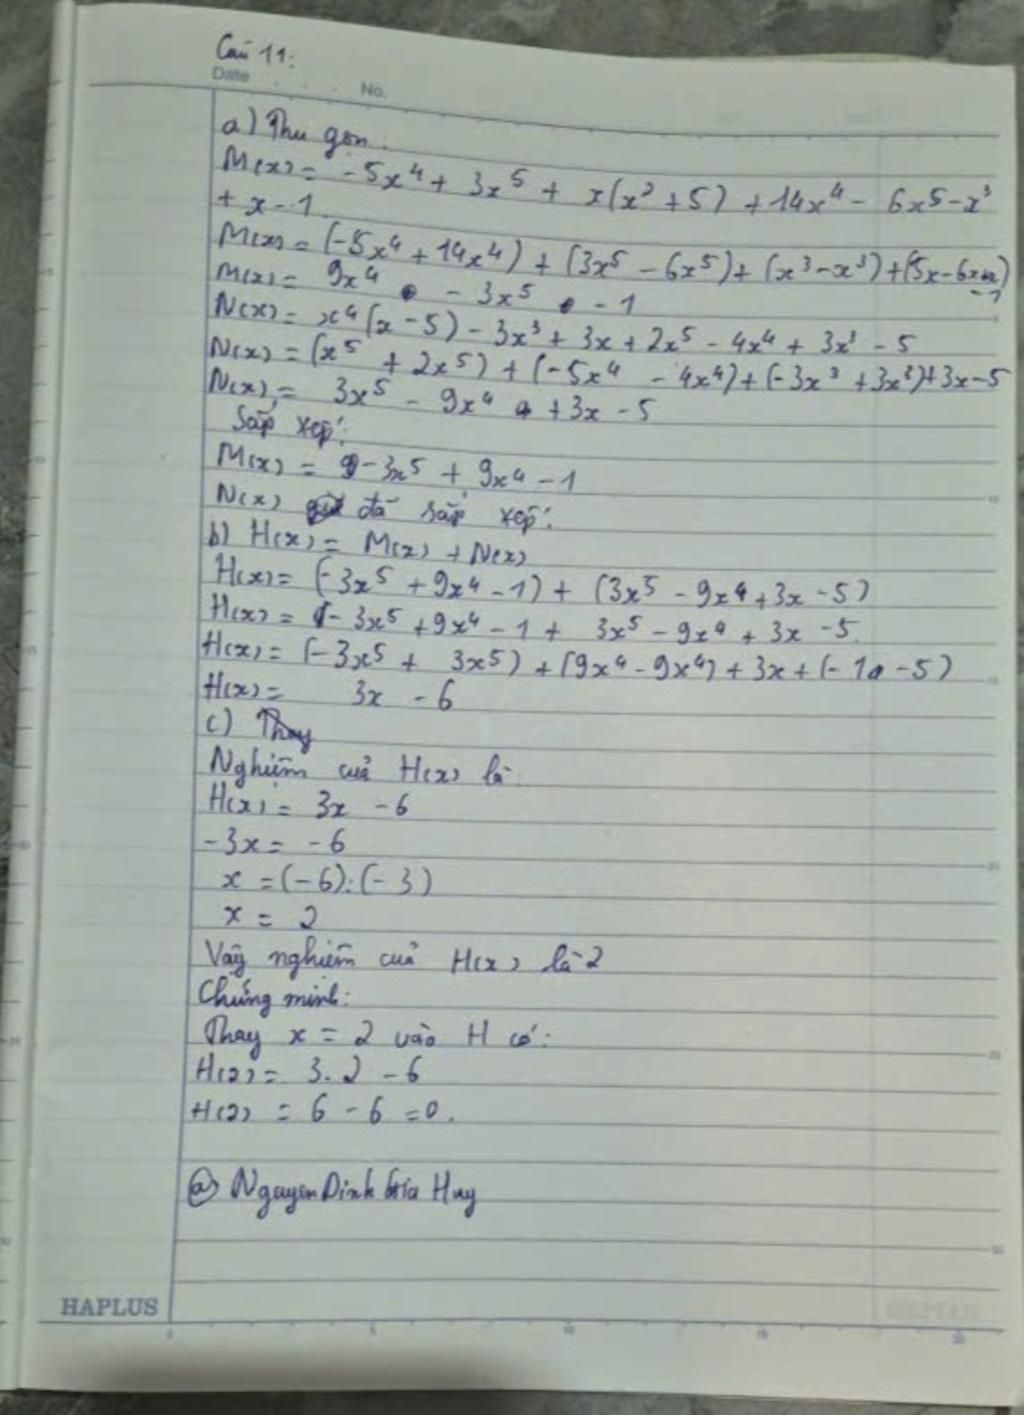 Câu 11:
Date No.
a) Thu gọn:
M(x) = -5x⁴ + 3x⁵ + x(x² + 5) + 14x⁴ - 6x⁵ - x³
+ x - 1
M(x) = (-5x⁴ + 14x⁴) + (3x⁵ - 6x⁵) + (x³ - x³) + (5x - 6x
- 1
M(x) = 9x⁴ - 3x⁵ - 1
N(x) = x⁴(x - 5) - 3x³ + 3x + 2x⁵ - 4x⁴ + 3x³ - 5
N(x) = (x⁵ + 2x⁵) + (-5x⁴ - 4x⁴) + (-3x³ + 3x³) + 3x - 5
N(x) = 3x⁵ - 9x⁴ + 3x - 5
Sắp xếp:
M(x) = -3x⁵ + 9x⁴ - 1
N(x) đã sắp xếp:
b) H(x) = M(x) + N(x)
H(x) = (-3x⁵ + 9x⁴ - 1) + (3x⁵ - 9x⁴ + 3x - 5)
H(x) = -3x⁵ + 9x⁴ - 1 + 3x⁵ - 9x⁴ + 3x - 5
H(x) = (-3x⁵ + 3x⁵) + (9x⁴ - 9x⁴) + 3x + (-1 - 5)
H(x) = 3x - 6
c) Thay
Nghiệm của H(x) là:
H(x) = 3x - 6
-3x = -6
x = (-6):(-3)
x = 2
Vậy nghiệm của H(x) là 2
Chứng minh:
Thay x = 2 vào H có:
H(2) = 3.2 - 6
H(2) = 6 - 6 = 0.
@ Nguyen Dinh Gia Huy
HAPLUS